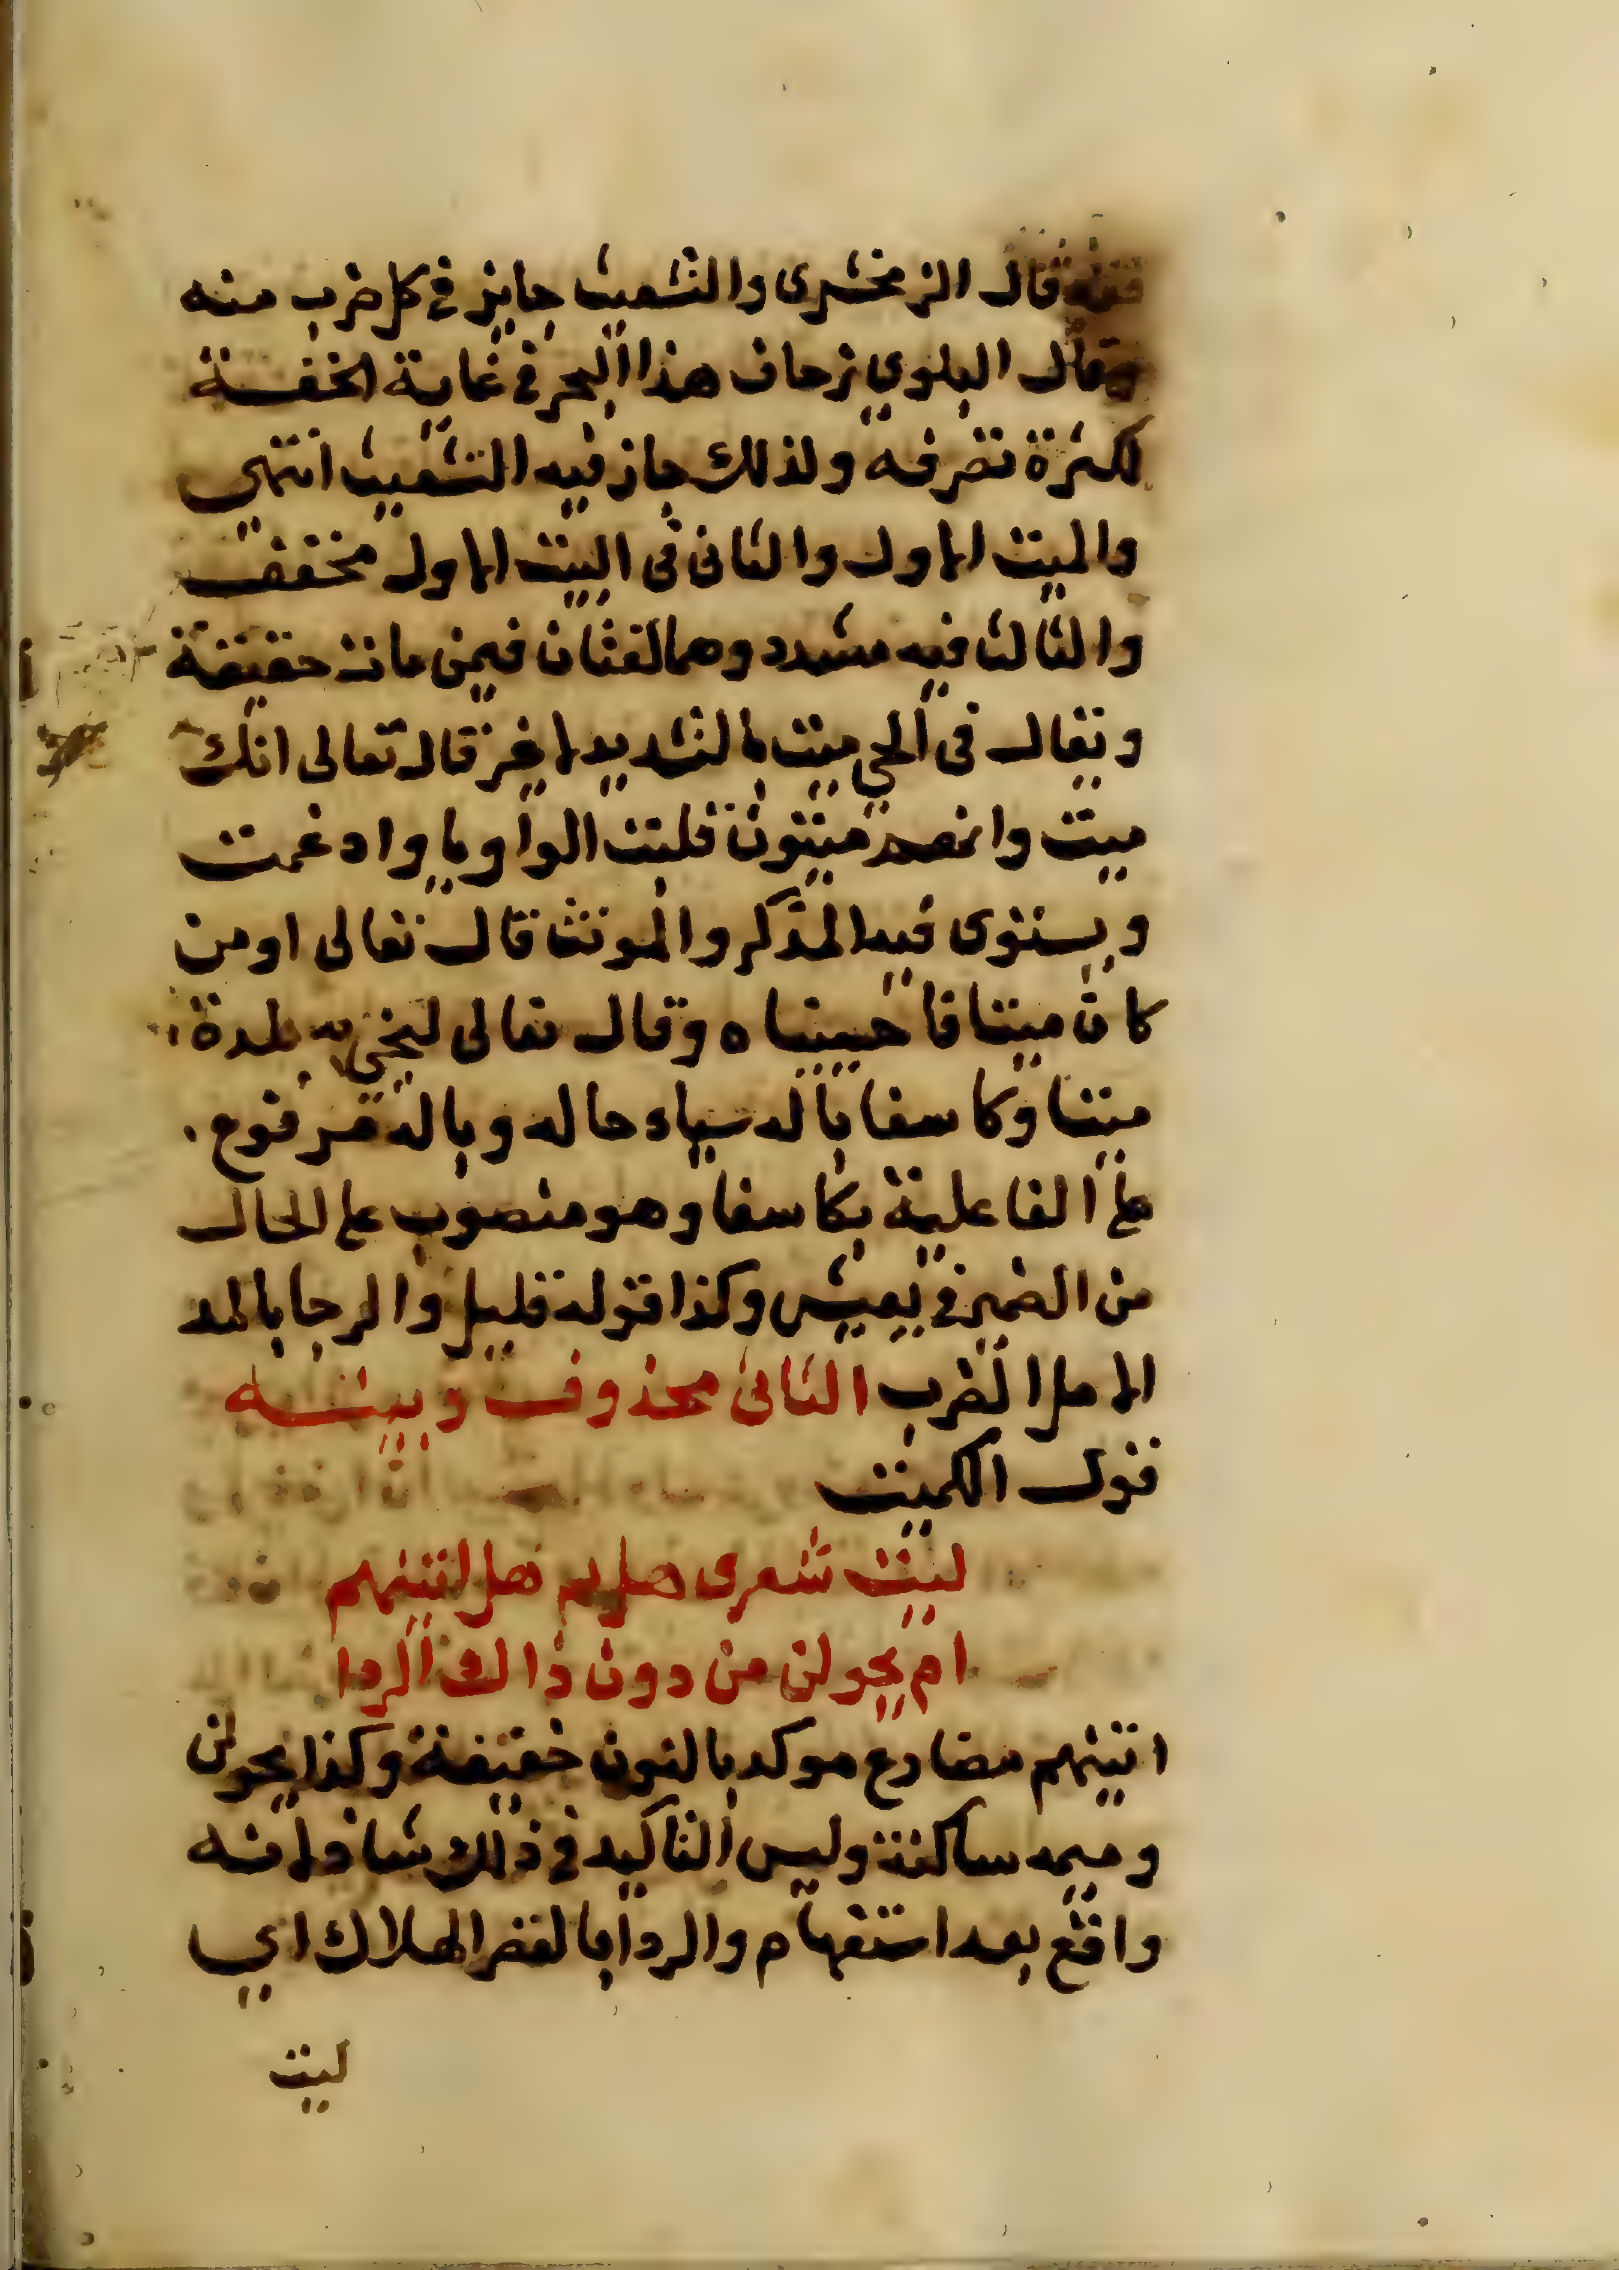 قال الزمخشرى والتشعيث جايز في كل ضرب منه
وقال البلوي زحاف هذا البحر في غاية الخفة
لكثرة تصرفه ولذلك جاز فيه التشعيث انتهى
والميت الاول والثانى فى البيت الاول مخفف
والثالث فيه مشدد وهما لغتان فيمن مات حقيقة
ويقال فى الحي ميت بالتشديد لا غير قال تعالى انك
ميت وانهم ميتون قلبت الواو يا وادغمت
ويستوى فيه المذكر والمونث قال تعالى اومن
كان ميتا فاحييناه وقال تعالى لنحي به بلدة
ميتا وكاسفا باله سياء حاله وباله مرفوع.
على الفاعلية بكاسفا وهو منصوب على الحال
من الضمير في يعيش وكذا قوله قليل والرجا بالمد
الامل الضرب الثانى محذوف وبيته
قول الكميت
ليت شعرى هل ثم هل اتينهم
ام يحولن من دون ذاك الردا
اتينهم مضارع موكد بالنون خفيفة وكذا يحولن
وميمه ساكنة وليس التاكيد في ذلك شاذ لانه
واقع بعد استفهام والردا بالقصر الهلاك اي
ليت